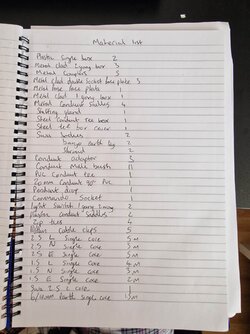 Material list
Plastic single box 2
Metal clad 1 gang box 3
Metal couplers 5
Metal clad double socket face plate 3
Metal fuse face plate 1
Metal clad 1 gang box 1
Metal Conduit Saddles 4
Stuffing gland 1
Steel Conduit tee box 1
Steel tee box cover 1
Swa
Banjo earth tag 2
2
Conduit adaptor 3
Conduit Male bush 11
PVC Conduit tee 1
20mm Conduit 90° PVC 1
Pendant drop 1
Commando Socket 1
light Switch 1 gang 2way 2
plastic conduit Saddles 2
Zip ties 4
cable clips 5
2.5 L Single core 5M
2.5 N Single core 5M
2.5 E Single core 5M
1.5 L Single core 4M
1.5 N Single core 3M
1.5 E Single core 2M
Swa 2.5 2 core 1
earth single core 1.5M